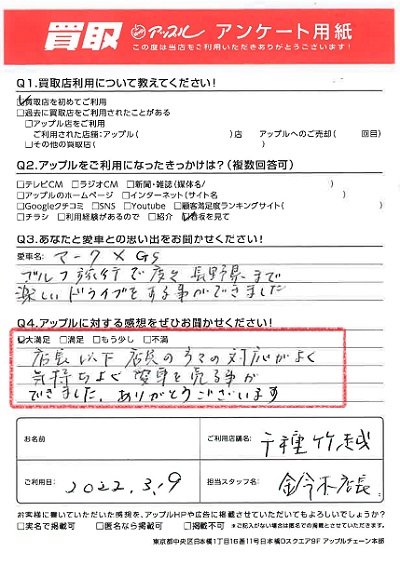 買取 アップル アンケート用紙
この度は当店をご利用いただきありがとうございます!
Q1.買取店利用について教えてください!
☑買取店を初めてご利用
□過去に買取店をご利用されたことがある
□アップル店をご利用
ご利用された店舗:アップル( )店 アップルへのご売却( 回目)
□その他の買取店( )
Q2.アップルをご利用になったきっかけは?(複数回答可)
□テレビCM □ラジオCM □新聞・雑誌(媒体名/ )
□アップルのホームページ □インターネット(サイト名 )
□Googleクチコミ □SNS □Youtube □顧客満足度ランキングサイト( )
□チラシ □利用経験があるので □紹介 ☑看板を見て
Q3.あなたと愛車との思い出をお聞かせください!
愛車名: マークX GS
ゴルフ旅行で度々長野県まで
楽しいドライブをする事ができました
Q4.アップルに対する感想をぜひお聞かせください!
☑大満足 □満足 □もう少し □不満
店長以下 店長の の対応がよく
気持ちよく愛車を売る事が
できました、ありがとうございます
お名前
ご利用店舗名: 千種竹越
ご利用日: 2022.3.9
担当スタッフ名: 鈴木店長
お客様に書いていただいた感想を、アップルHPや広告に掲載させていただいてもよろしいでしょうか?
□実名で掲載可 □匿名なら掲載可 □掲載不可 ※ご記入がない場合は匿名での掲載とさせていただきます。
東京都中央区日本橋1丁目16番11号日本橋Dスクエア9F アップルチェーン本部